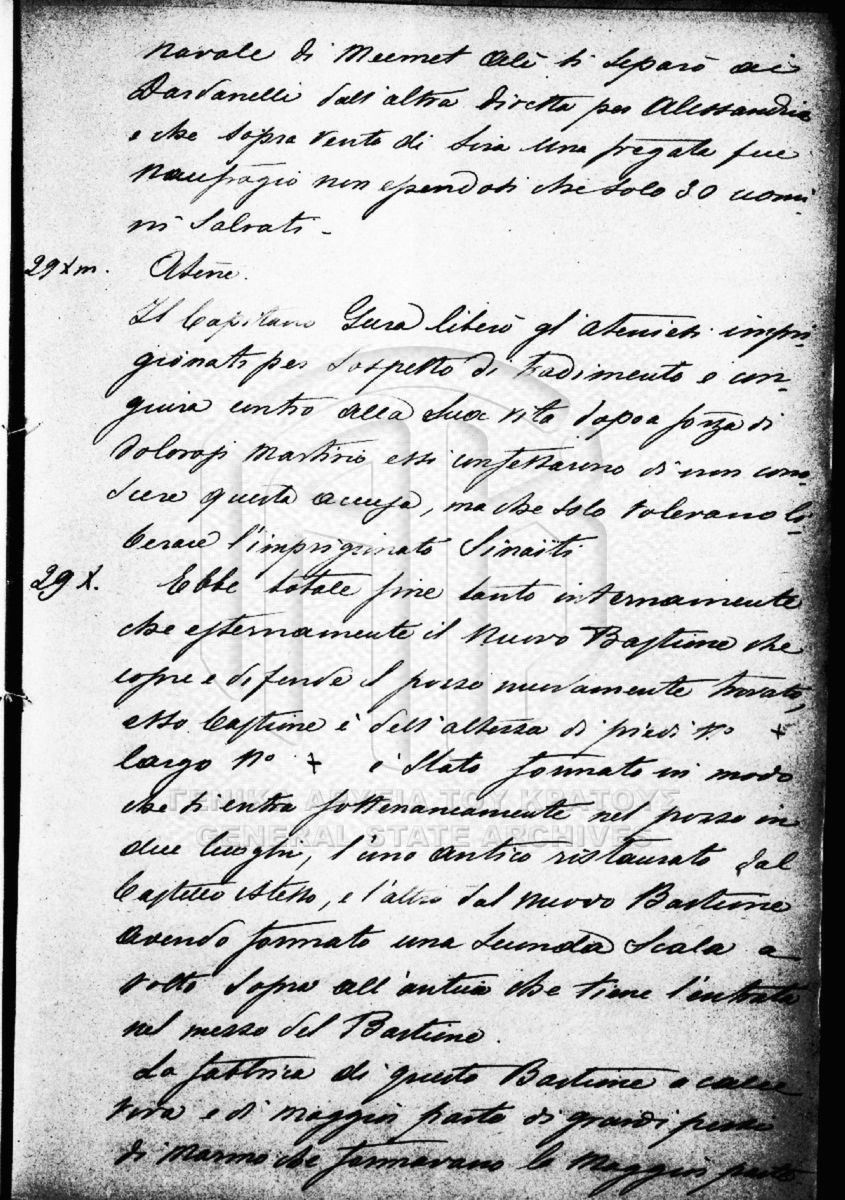 navale di Meemet Alì si separò ai
Dardanelli dall'altra diretta per Alessandria
e che sopra vento di Sira una fregata fece
Naufragio non essendosi che solo 30 uomi-
ni Salvati -
29 Xm. Atene.
Il Capitano Gura liberò gl'Ateniesi impri-
gionati per sospetto di tradimento e con-
giura contro alla sua vita dopo a forza di
dolorosi martirii essi confessarono di non cono-
scere questa accusa, ma che solo volevano li-
berare l'imprigionato Sinaiti
29 X. Ebbe totale fine tanto internamente
che esternamente il nuovo Bastione che
copre e difende il pozzo nuovamente trovato,
esso Bastione è dell'altezza di piedi N.º +
largo Nº + è stato formato in modo
che si entra sotterraneamente nel pozzo in
due luoghi, l'uno antico ristaurato dal
Castello istesso, e l'altro dal nuovo Bastione
avendo formato una seconda Scala a
volto sopra all'antica che tiene l'entrata
nel mezzo del Bastione.
La fabbrica di questo Bastione a calce
viva e di maggior parte di grandi pezzi
di Marmo che formavano la maggior parte
ΓΕΝΙΚΑ ΑΡΧΕΙΑ ΤΟΥ ΚΡΑΤΟΥΣ
GENERAL STATE ARCHIVES